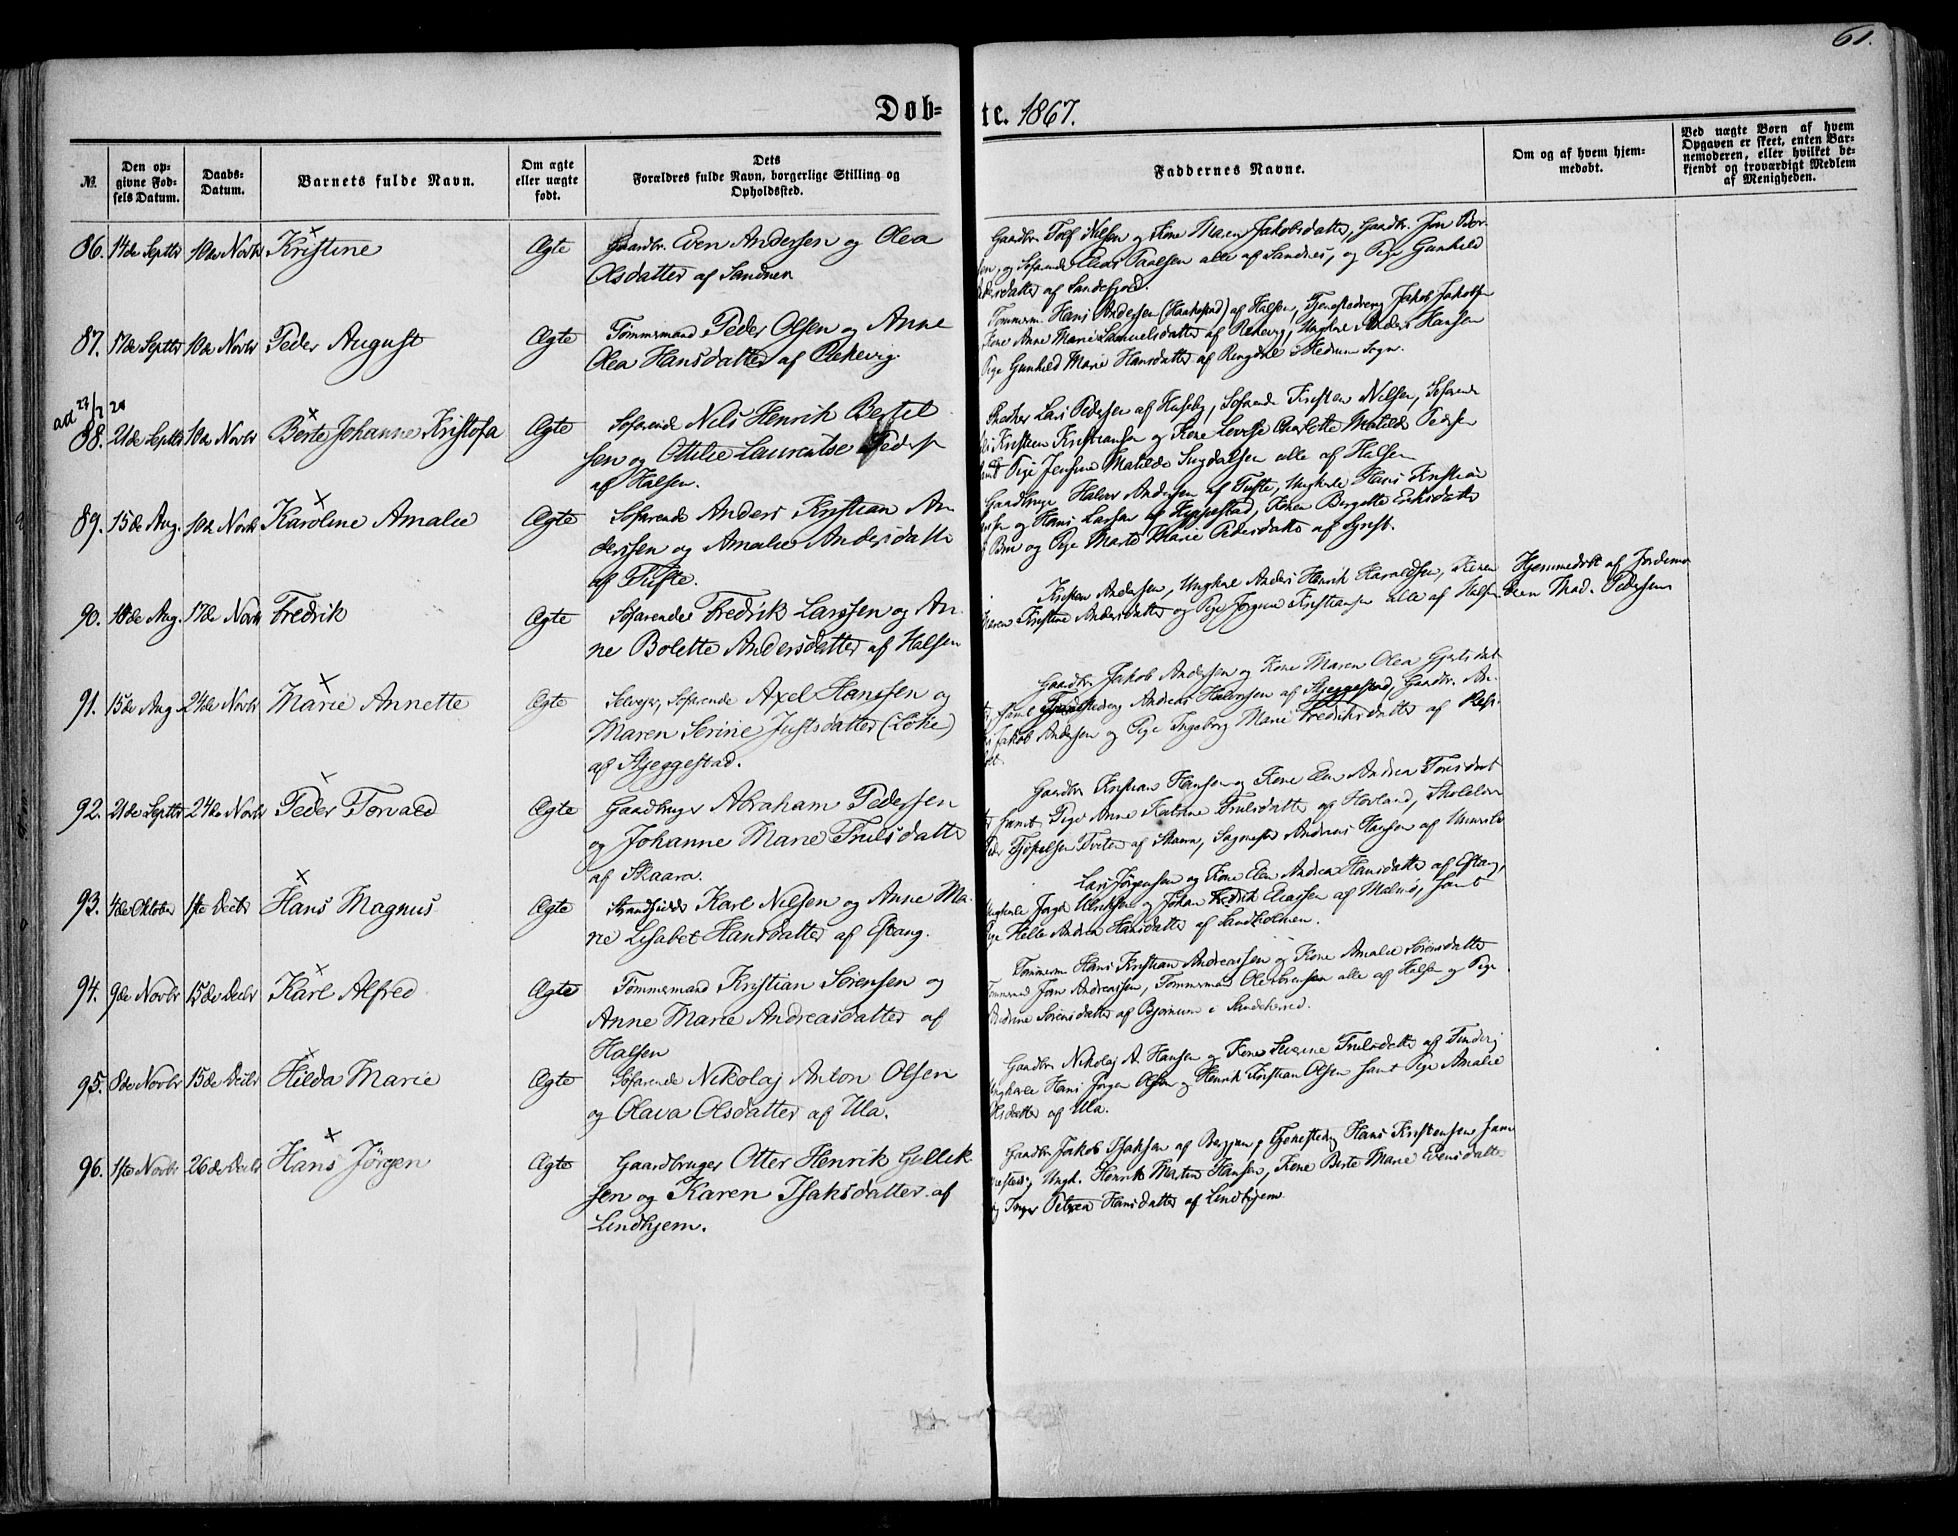 61.
Døb-te. 1867.
№
Den opgivne Fødsels Datum.
Daabs-Datum.
Barnets fulde Navn.
Om ægte eller uægte født.
Dets Forældres fulde Navn, borgerlige Stilling og Opholdssted.
Faddernes Navne.
Om og af hvem hjemmedøbt.
Ved uægte Børn af hvem Opgaven er skeet, enten Barnemoderen, eller hvilket bekjendt og troværdigt Medlem af Menigheden.
86. 14de Septbr 10de Novbr Kristine Ægte Gaardbr. Even Anderssen og Olea
Olsdatter af Sandnes
Gaardbr. Tolf Nilsen og Kone Maren Jakobsdatter, Gaardbr. Jon
og Søfarende Elias Paalsen alle af Sandnes, og Pige Gunhild
af Sandefjord.
87. 17de Septbr 10de Novbr Peder August Ægte Tømmermand Peder Olsen og Anne
Olea Hansdatter af Rekevig.
Tømmerm. Hans Andersen (Haakestad) af Halsen, Tjenestedreng Jakob Jakobsen
Kone Anne Marie Samuelsdatter af Rekevig, Ungkarl Anders Hansen
Pige Gunhild Marie Hansdatter af Ringdal i Hedrum Sogn.
88. 21de Septbr 10de Novbr Berte Johanne Kristofa Ægte Søfarende Nils Henrik Bertel
sen og Ottilie Laurentse Peders
af Halsen.
Lars Pedersen af Huseby, Søfarende Kristen Nilsen, Søfarende
Kristen Kristiansen og Kone Lovise Charlotte Matilde Pedersen
samt Pige Jensine Matilde alle af Halsen
89. 15de Aug. 10de Novbr Karoline Amalie Ægte Søfarende Anders Kristian An
derssen og Amalie Andersdatter
af Tufte.
Gaardbruger Halvor Andersen af Tufte, Ungkarle Hans Kristian
og Hans Larsen af Heggestad, Konen Bergette Eriksdatter
og Pige Marte Marie Pedersdatter af
90. 10de Aug. 17de Novbr Fredrik Ægte Søfarende Fredrik Larssen og An
ne Bolette Andersdatter af Halsen
Kristen Andersen, Ungkarl Anders Henrik Haraldsen, Konen
Maren Kristine Andersdatter og Pige Jørgine Kristiansen alle af Halsen
Hjemmedøbt af Jordemo
deren Mad. Pedersen
91. 15de Aug. 24de Novbr Marie Annette Ægte Selveier, Søfarende Axel Hanssen og
Maren Serine Justsdatter (Løke)
af Skjeggestad.
Gaardbr. Jakob Andersen og Kone Maren Olea Gjertsdat
samt Tjenestedreng Andreas Halvorsen af Skjeggestad, Gaardbr. An
Jakob Andersen og Pige Ingeborg Marie Fredriksdatter af
92. 21de Septbr 24de Novbr Peder Torvald Ægte Gaardbruger Abraham Pederssen
og Johanne Marie Trulsdatter
af Skaara.
Gaardbr. Kristian Hansen og Kone Elen Andrea
samt Pige Anne Katrine Trulsdatter af Hovland,
af Skaara, Sagmester Andreas Hansen af
93. 4de Oktober 1ste Decbr Hans Magnus Ægte Strandsidder Karl Nilsen og Anne Ma
rie Lisabet Hansdatter af Eftang.
Lars Jørgensen og Kone Elen Andrea Hansdatter af Eftang,
Ungkarle Jørgen Ulriksen og Johan Fredrik Eliassen af Malmø, samt
Pige Helle Andrea Hansdatter af Sandholmen.
94. 9de Novbr 15de Decbr Karl Alfred Ægte Tømmermand Kristian Sørensen og
Anne Marie Andreasdatter af
Halsen
Tømmerm. Hans Kristian Andreassen og Kone Amalie Sørensdatter
Tømmermand Jørn Andreassen, Tømmermand Ole Sørensen alle af Halsen og Pige
Sørensdatter af Bjørnum i Sandeherred.
95. 8de Novbr 15de Decbr Hilda Marie Ægte Søfarende Nikolaj Anton Olsen
og Olava Olsdatter af Ula.
Gaardbr. Nikolaj A. Hansen og Kone Severine Trulsdatter af
Ungkarle Hans Jørgen Olsen og Henrik Kristian Olsen samt Pige Amalie
Olsdatter af Ula.
96. 1ste Novbr 26de Decbr Hans Jørgen Ægte Gaardbruger Otter Henrik Gullik
sen og Karen Isaksdatter af
Lindhjem.
Gaardbr. Jakob Isaksen af Bergan, Tjenestedreng Hans Kristensen
Ungk. Henrik Martin Hansen, Kone Berte Marie Evensdatter
og Inger Petrea Hansdatter af Lindhjem